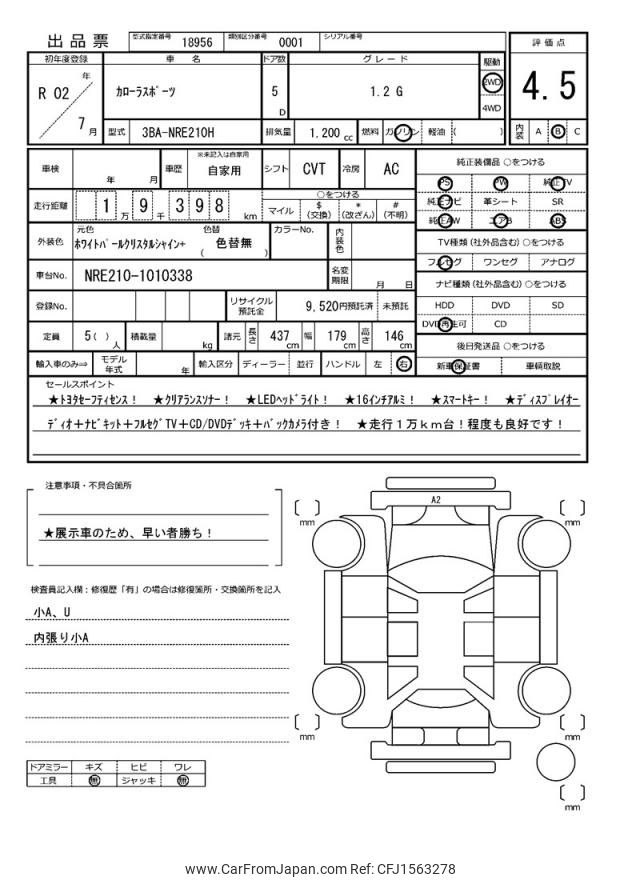 出品票
型式指定番号 18956 類別区分番号 0001 シリアル番号
初年度登録 車名 ドア数 グレード 駆動 評価点
R 02 年 7 月
カローラスポーツ 5 D 1.2 G 2WD 4WD
4.5
型式 3BA-NRE210H 排気量 1.200 cc 燃料 ガソリン 軽油 ( )
内装 A B C
車検 年 月 車歴 ※未記入は自家用 自家用 シフト CVT 冷房 AC
走行距離 1 万 9 千 3 9 8 km
○をつける
マイル $ (交換) * (改ざん) # (不明)
外装色 元色 ホワイトパールクリスタルシャイン+ 色替 ( 色替無 ) カラーNo. 内装色
車台No. NRE210-1010338 名変期限 月 日
登録No. リサイクル預託金 9,520円預託済 未預託
定員 5( ) 人 積載量 kg 諸元 長さ 437 cm 幅 179 cm 高さ 146 cm
輸入車のみ⇒ モデル年式 年 輸入区分 ディーラー 並行 ハンドル 左 右
純正装備品 ○をつける
PS PW 純正TV
純正ナビ 革シート SR
純正AW エアB ABS
TV種類(社外品含む)○をつける
フルセグ ワンセグ アナログ
ナビ種類(社外品含む)○をつける
HDD DVD SD
DVD再生可 CD
後日発送品 ○をつける
新車保証書 車輌取説
セールスポイント
★トヨタセーフティセンス! ★クリアランスソナー! ★LEDヘッドライト! ★16インチアルミ! ★スマートキー! ★ディスプレイオー
ディオ+ナビキット+フルセグTV+CD/DVDデッキ+バックカメラ付き! ★走行1万km台!程度も良好です!
注意事項・不具合箇所
★展示車のため、早い者勝ち!
検査員記入欄:修復歴「有」の場合は修復箇所・交換箇所を記入
小A、U
内張り小A
ドアミラー キズ ヒビ ワレ
工具 無 ジャッキ 無
A2
mm
mm
mm
mm
mm
www.CarFromJapan.com Ref: CFJ1563278